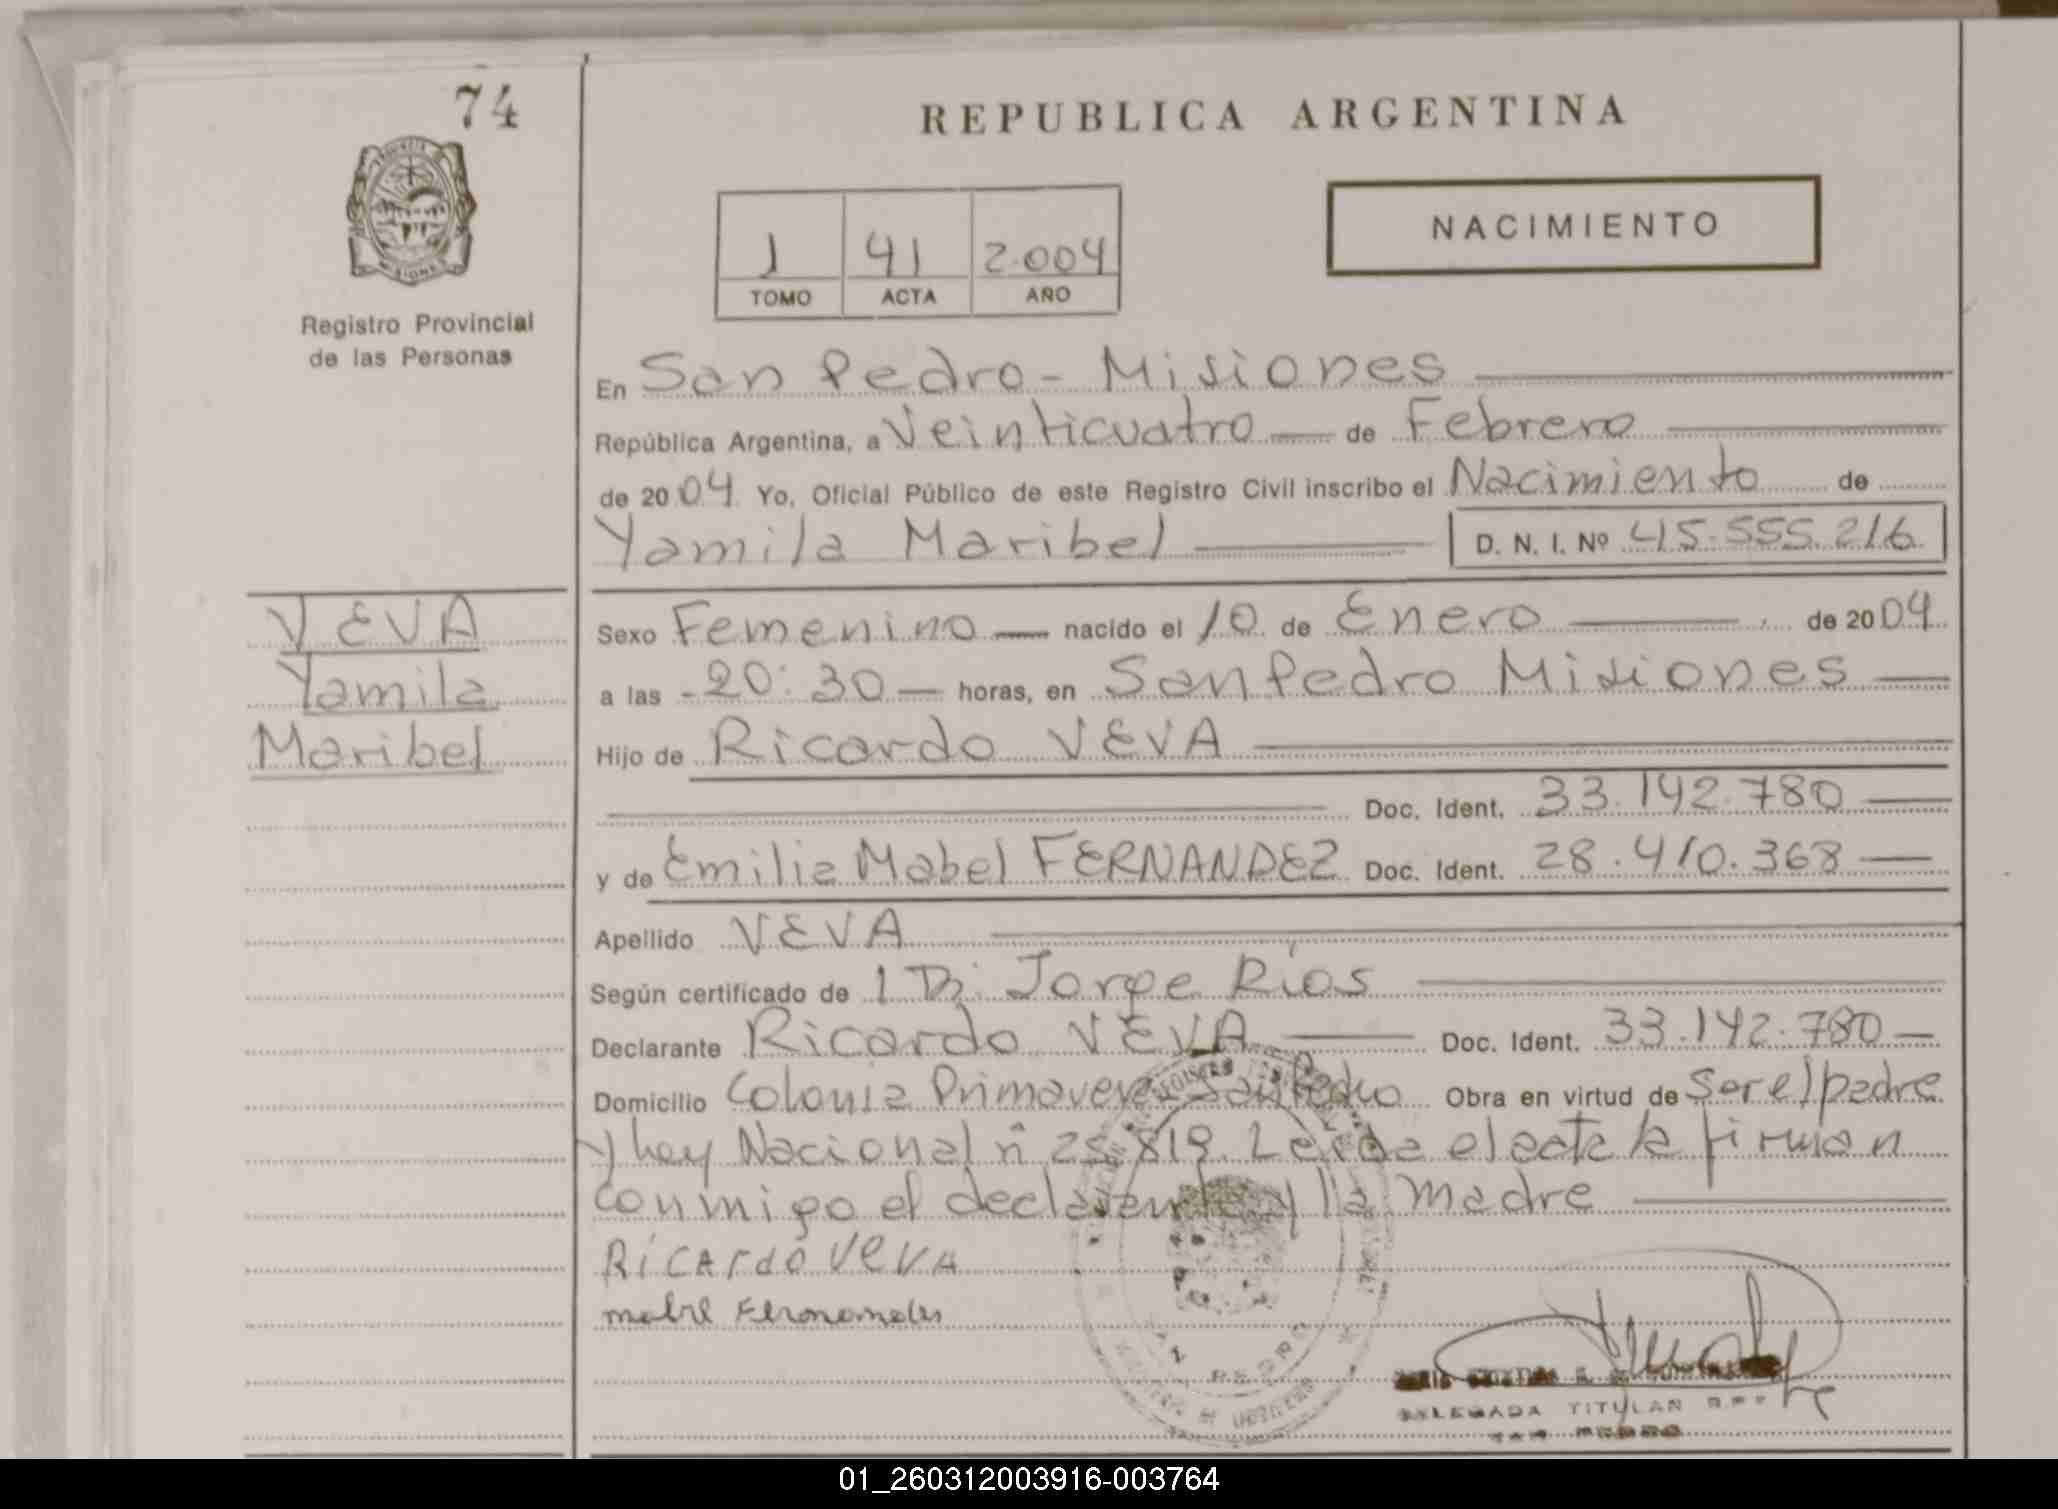 74
REPUBLICA ARGENTINA
PROVINCIA DE
MISIONES
Registro Provincial
de las Personas
1 41 2.004
TOMO ACTA AÑO
NACIMIENTO
En San Pedro - Misiones
República Argentina, a Veinticuatro de Febrero
de 2004 Yo, Oficial Público de este Registro Civil inscribo el Nacimiento de
Yamila Maribel D. N. I. Nº 45.555.216
VEVA
Yamila
Maribel
Sexo Femenino nacido el 10 de Enero de 2004
a las 20:30 horas, en San Pedro Misiones
Hijo de Ricardo VEVA
Doc. Ident. 33.142.780
y de Emilia Mabel FERNANDEZ Doc. Ident. 28.410.368
Apellido VEVA
Según certificado de 1 Dr. Jorge Ríos
Declarante Ricardo VEVA Doc. Ident. 33.142.780
Domicilio Colonia Primavera San Pedro Obra en virtud de Ser el padre
y ley Nacional nº 25.819. Leida el acta la firman
conmigo el declarante y la madre
RiCARdo VeVA
mabel Fernandes
PEDRO
DELEGADA TITULAR
SAN PEDRO
01_260312003916-003764